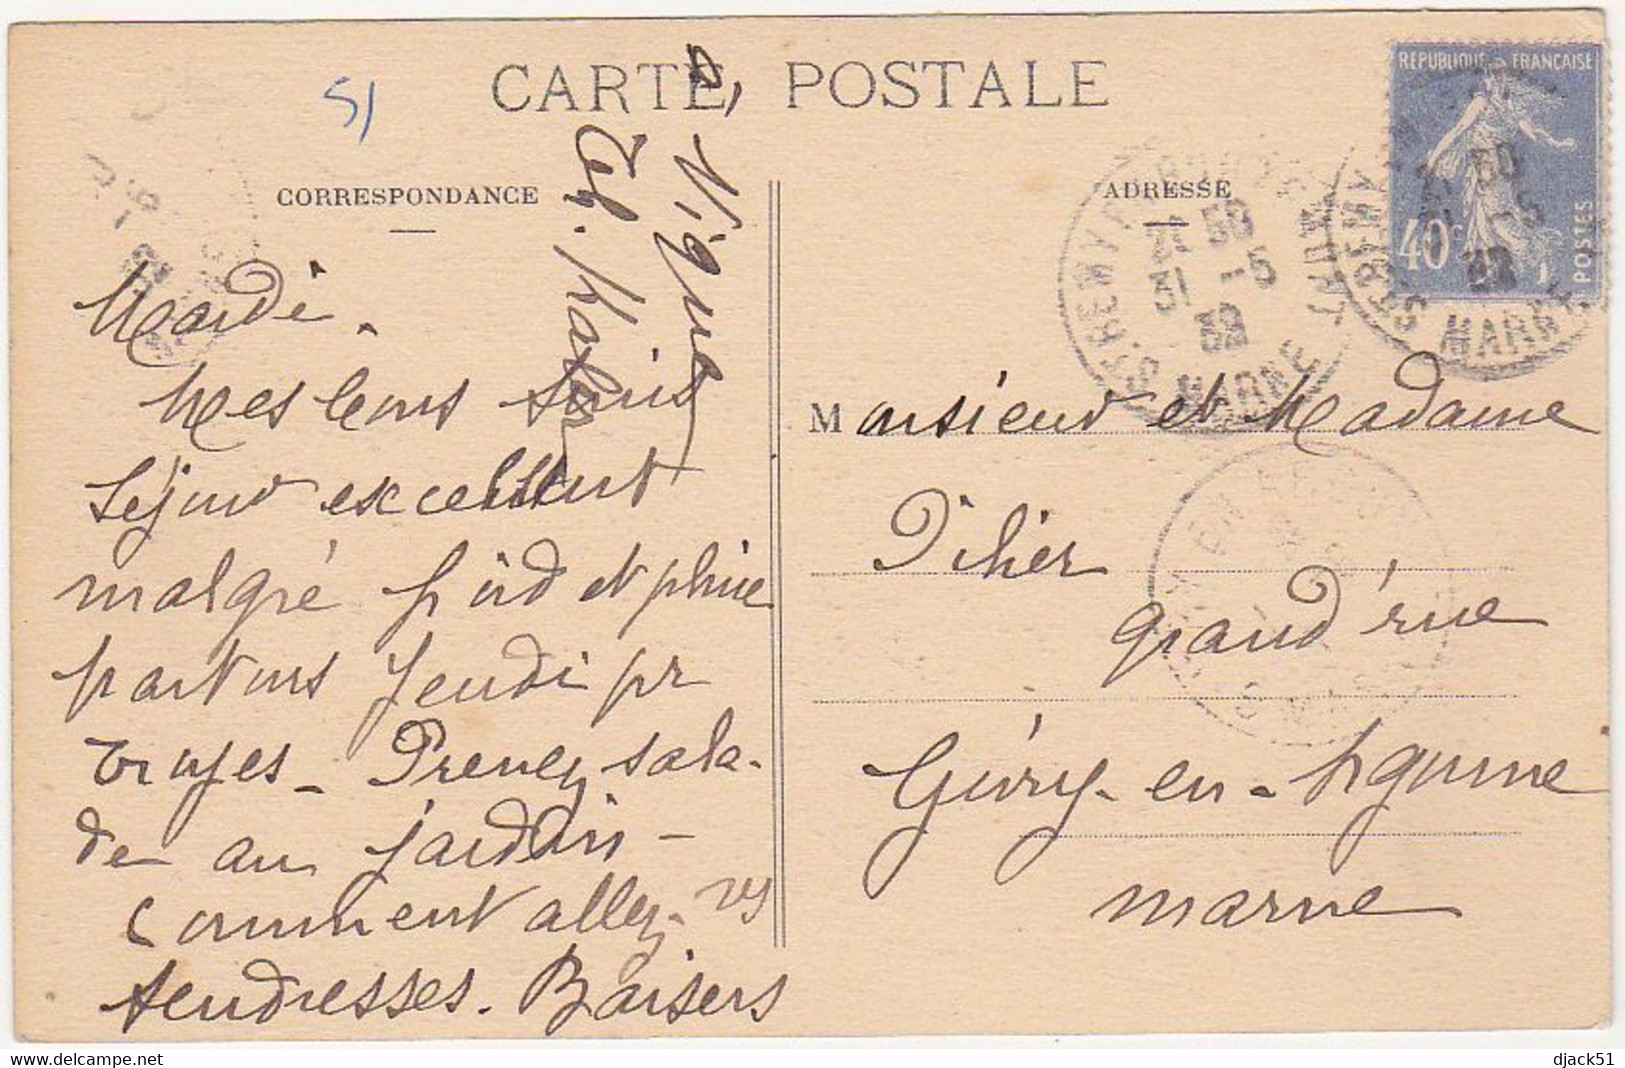 CARTE POSTALE
51
CORRESPONDANCE
Mardi.
Mes bons amis
Séjour excellent
malgré froid et pluie
partons Jeudi pr
Troyes - Prenez sala-
de au jardin -
Comment allez-vs
tendresses. Baisers
ADRESSE
RÉPUBLIQUE FRANÇAISE
40c
POSTES
ST REMY
MARNE
21 30
31 -5
32
ST REMY
MARNE
30
-5
32
Monsieur et Madame
Pihier
grand'rue
Givry-en-Argonne
Marne
djack51